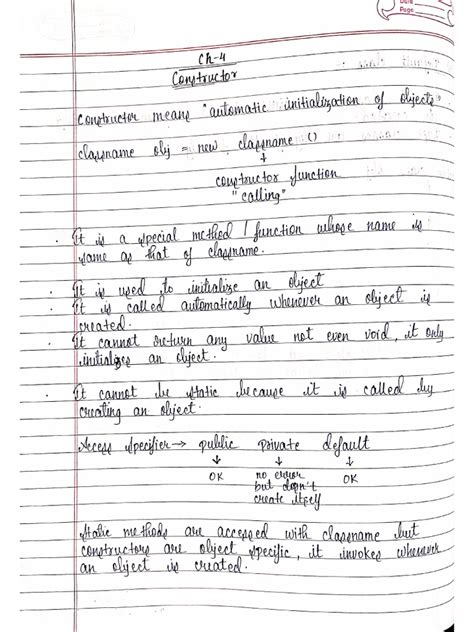 Date
Page
Ch-4
Constructor
Constructor means "automatic initialization of objects"
classname obj = new classname ()
↓
constructor function
"calling"
· It is a special method / function whose name is
same as that of classname.
· It is used to initialize an object
· It is called automatically whenever an object is
created.
· It cannot return any value not even void, it only
initializes an object.
· It cannot be static because it is called by
creating an object.
Access specifier → public private default
↓ ↓ ↓
OK no error OK
but doesn't
create itself
Static methods are accessed with classname but
constructors are object specific, it invokes whenever
an object is created.